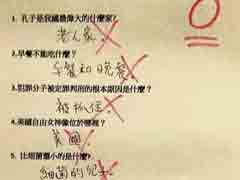 1. 孔子是我國最偉大的什麼家?
老人家
2.早餐不能吃什麼?
午餐和晚餐
3.犯罪分子被定罪判刑的根本原因是什麼?
被抓住
4.美國自由女神像位於哪裡?
美國
5. 比細菌還小的是什麼?
細菌的兒子
0